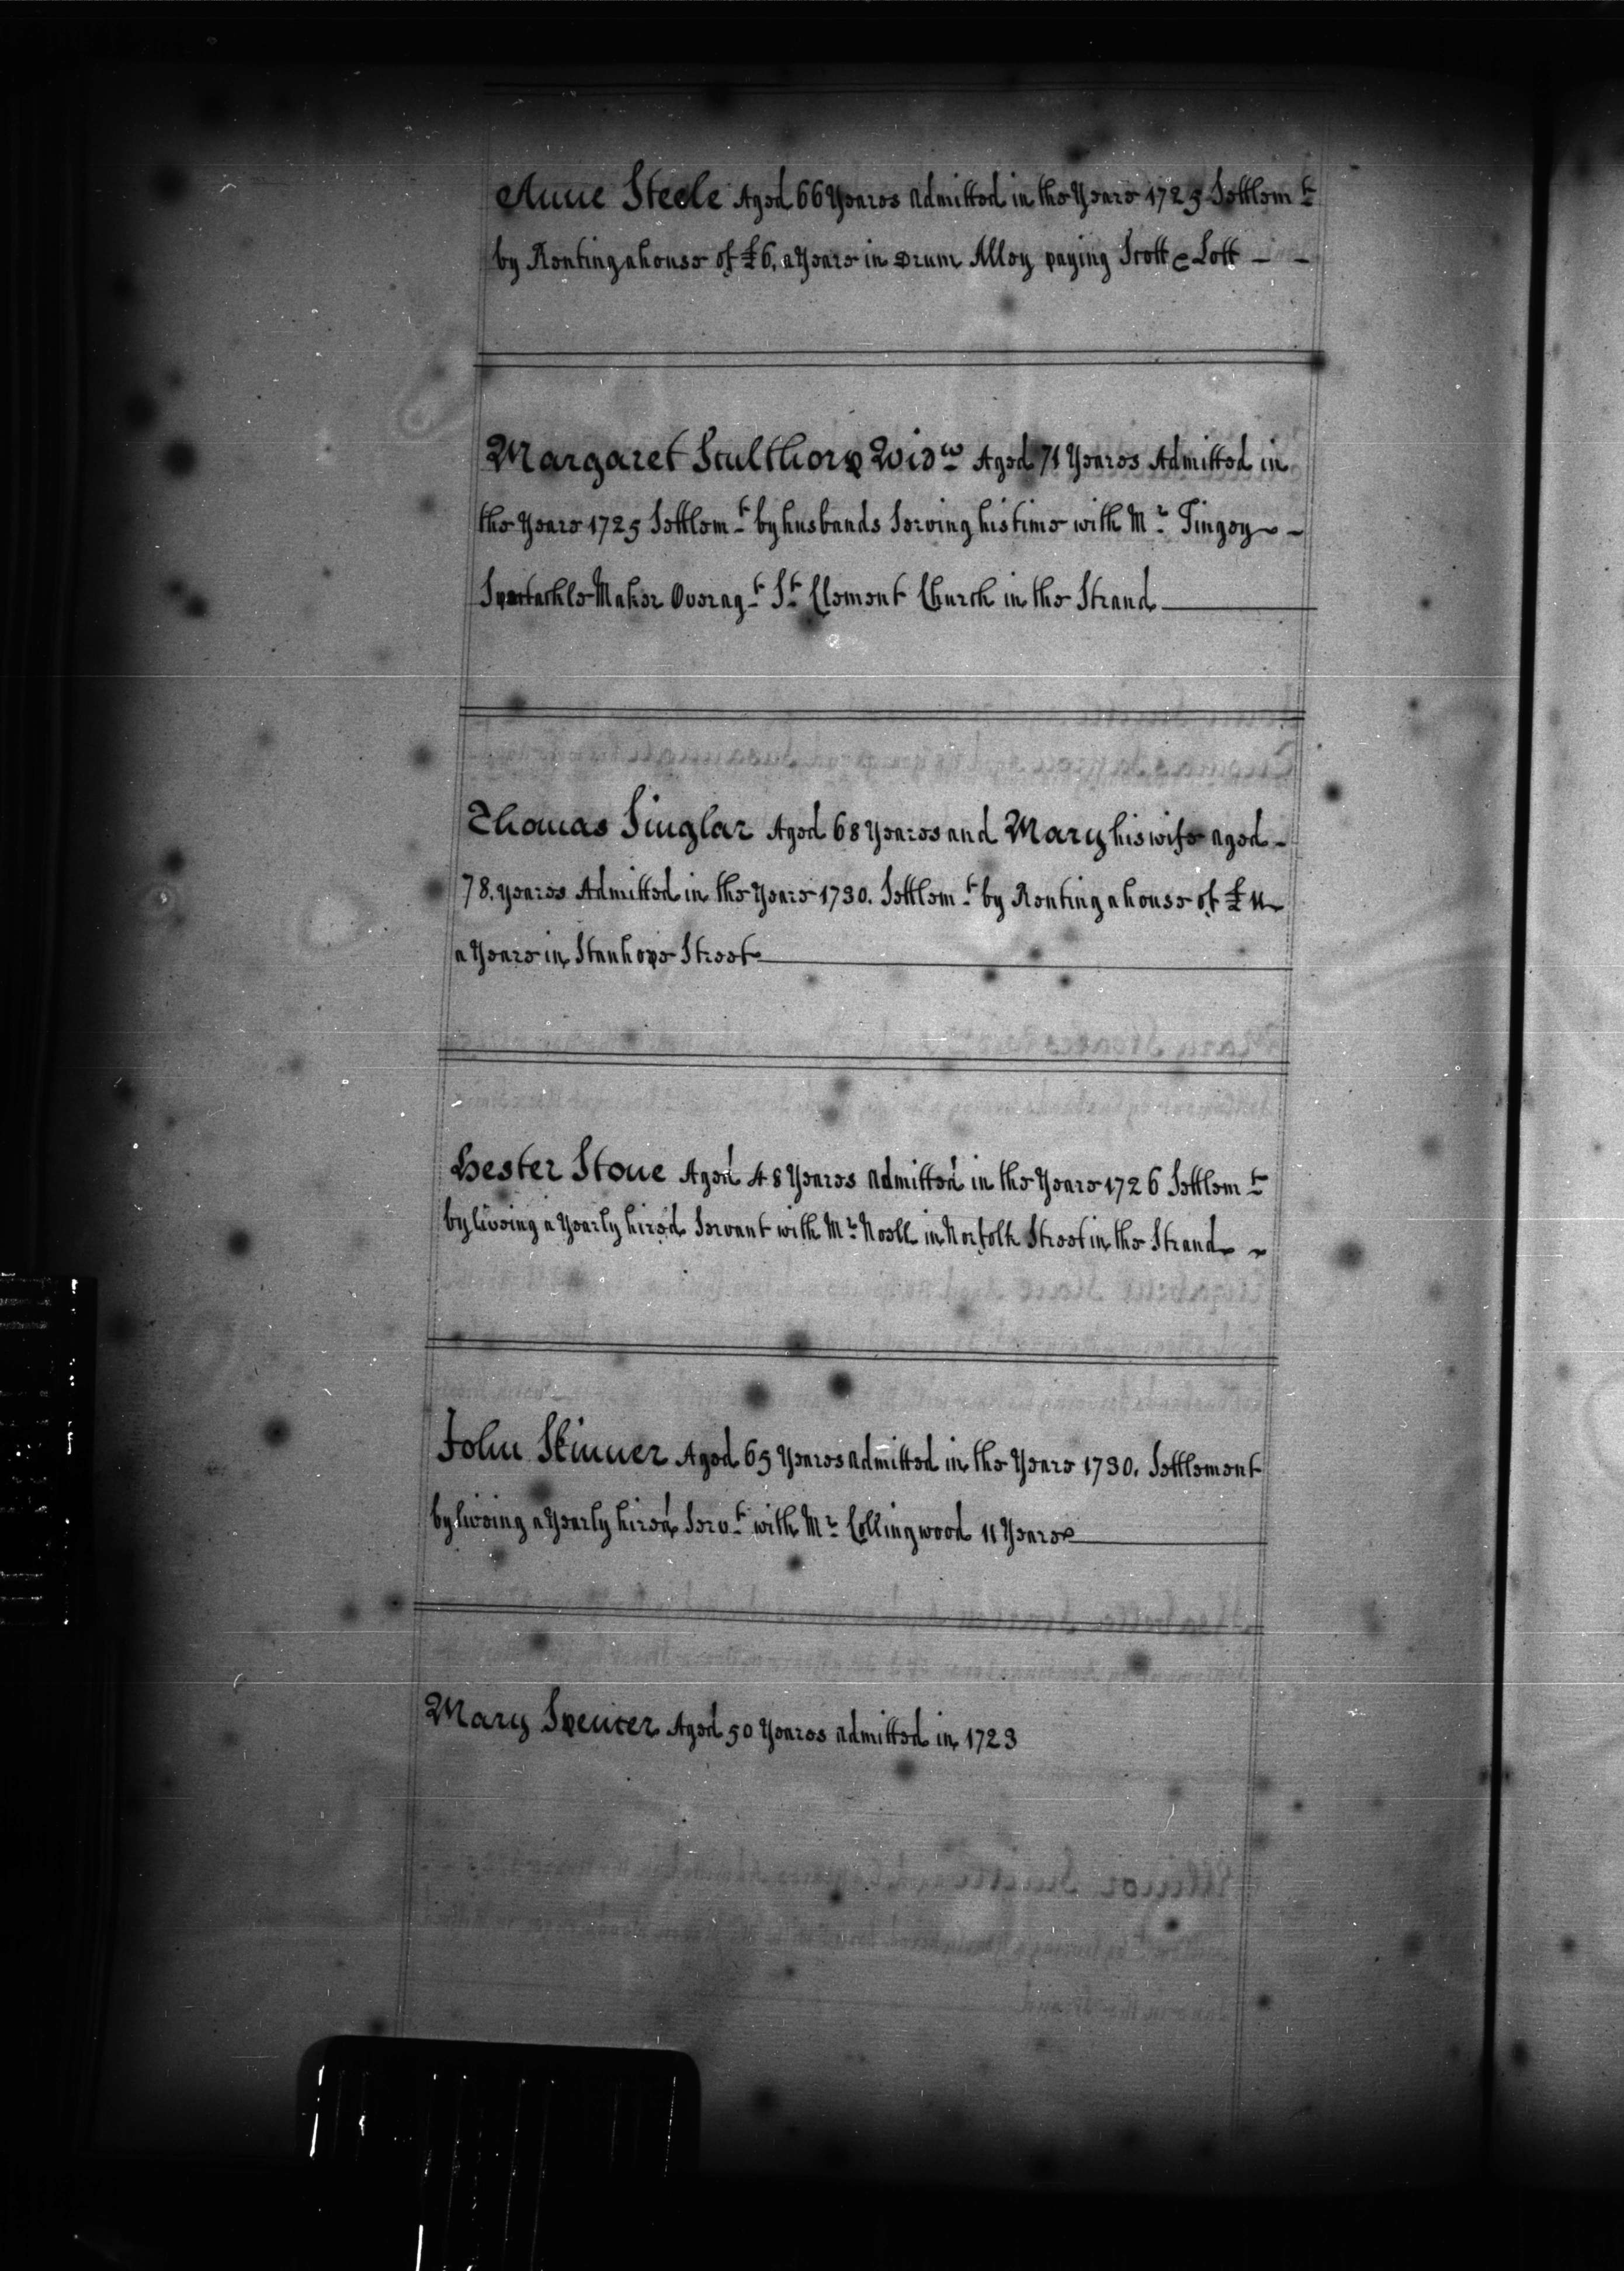 Anne Steele Aged 66 Yeares Admitted in the Yeare 1725 Settlemt
by Renting a house of £6, a Yeare in Drum Alley paying Scott & Lott - -
Margaret Sculthorp Widw Aged 71 Yeares Admitted in
the Yeare 1725 Settlemt by husbands Serving his time with Mr Tingey -
Spectackle Maker Overagt St Clement Church in the Strand
Thomas Singlar Aged 68 Yeares and Mary his wife aged -
78. yeares Admitted in the Yeare 1730. Settlemt by Renting a house of £11
a Yeare in Stanhope Street
Hester Stone Aged 48 Yeares Admitted in the Yeare 1726 Settlemt
by liveing a Yearly hired Servant with Mr Noell in Norfolk Street in the Strand ~
John Skinner Aged 65 Yeares Admitted in the Yeare 1730. Settlement
by liveing a Yearly hired Servt with Mr Collingwood 11 Yeares
Mary Spencer Aged 50 Yeares Admitted in 1723